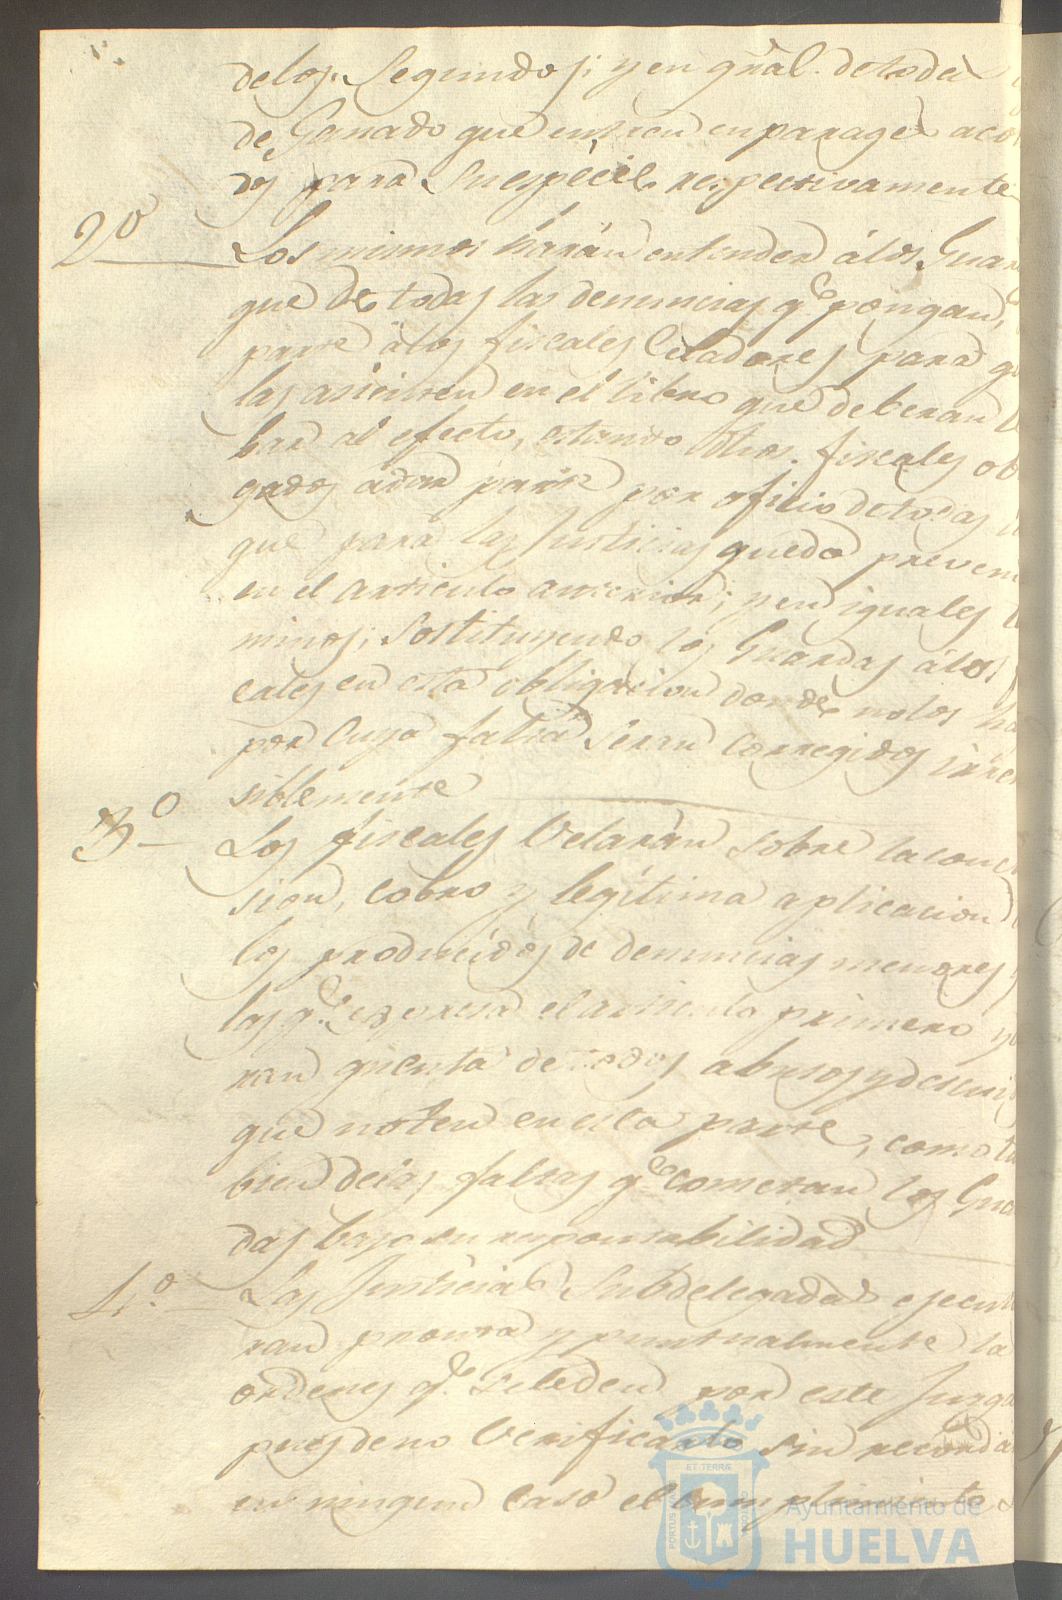 de los Segundos; y en gral. de toda
de Ganado que entren en parages aco
dos para su especie respectivamente
2º Los mismos harán entender á los Guar
que de todas las denuncias qe. pongan,
parte á los fiscales Celadores para q
las asienten en el libro que deberan
bar al efecto, estando dhos. fiscales ob
gados á dar parte por oficio de todas
que para las Justicias queda preveni
en el articulo anterior; y en iguales
minos; sostituyendo los Guardas á los
cales en esta obligacion donde no los ha
por cuya falta seran corregidos irre
siblemente
3º Los fiscales Velarán sobre la
sion, cobro y legítima aplicacion
los producídos de denuncias menores
las qe. expresa el articulo primero y
ran quenta de todos abusos y descui
que noten en esta parte, como ta
bien de las faltas qe cometan los Gua
das bajo su responsabilidad
4º. Las Justicias Subdelegadas ejecuta
ran pronta y puntualmente la
ordenes qe. se le den por este Juzga
pues de no Verificarlo sin
en ningun caso el cumplimiento
PORTUS
ET TERRÆ
CUSTODIA
Ayuntamiento de
HUELVA